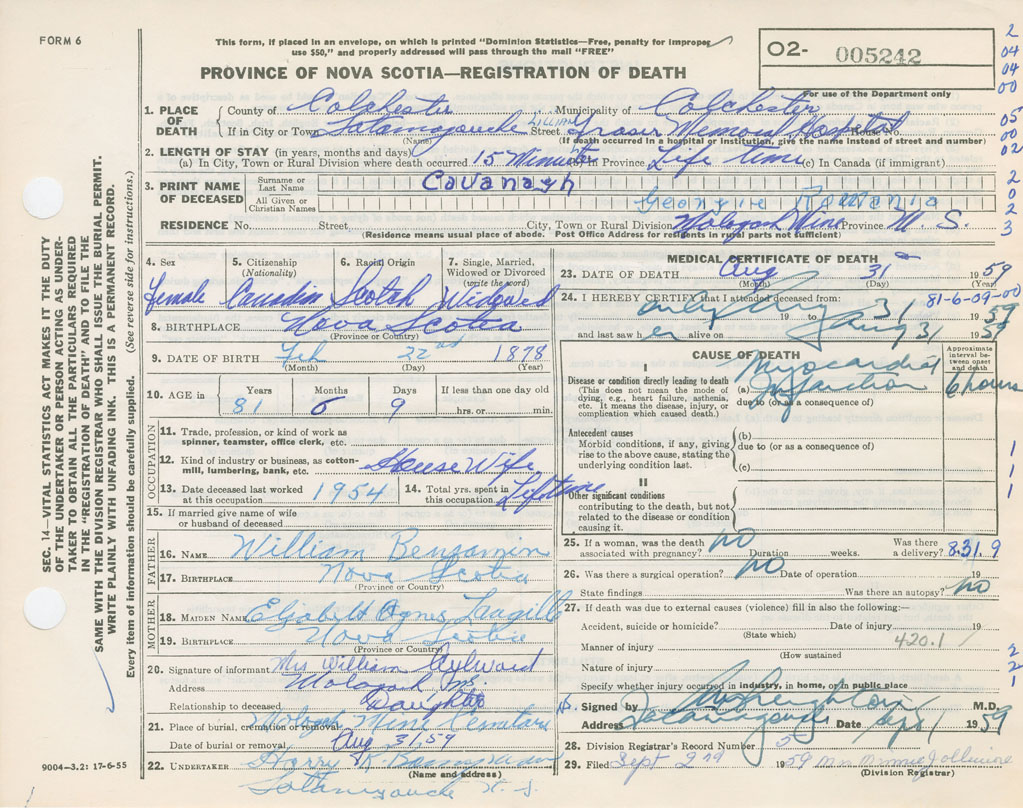 FORM 6
This form, if placed in an envelope, on which is printed "Dominion Statistics—Free, penalty for improper
use $50," and properly addressed will pass through the mail "FREE"
O2- 005242
For use of the Department only
PROVINCE OF NOVA SCOTIA—REGISTRATION OF DEATH
2
04
04
00
05
00
02
2
0
2
3
1. PLACE OF DEATH
County of Colchester Municipality of Colchester
If in City or Town Tatamagouche LILLIAN Street Fraser Memorial Hospital House No.
(Name) (If death occurred in a hospital or institution, give the name instead of street and number)
2. LENGTH OF STAY (in years, months and days)
(a) In City, Town or Rural Division where death occurred 15 Minutes (b) In Province Life time (c) In Canada (if immigrant)
3. PRINT NAME OF DECEASED
Surname or Last Name Cavanagh
All Given or Christian Names Georgie
RESIDENCE No. Street City, Town or Rural Division Mine Province N. S.
(Residence means usual place of abode. Post Office Address for residents in rural parts not sufficient)
4. Sex 5. Citizenship (Nationality) 6. Racial Origin 7. Single, Married, Widowed or Divorced (write the word)
female Canadin Scotch Widowed
8. BIRTHPLACE Nova Scotia
(Province or Country)
9. DATE OF BIRTH Feb 22nd 1878
(Month) (Day) (Year)
10. AGE in Years Months Days If less than one day old
81 6 9 hrs. or min.
OCCUPATION
11. Trade, profession, or kind of work as spinner, teamster, office clerk, etc.
12. Kind of industry or business, as cotton-mill, lumbering, bank, etc. House Wife
13. Date deceased last worked at this occupation 1954 14. Total yrs. spent in this occupation Lifetime
15. If married give name of wife or husband of deceased
FATHER
16. NAME William Benjamin
17. BIRTHPLACE Nova Scotia
(Province or Country)
MOTHER
18. MAIDEN NAME Elizabeth Agnes Langille
19. BIRTHPLACE Nova Scotia
(Province or Country)
20. Signature of informant Mrs William Aylward
Address N.S.
Relationship to deceased Daughter
21. Place of burial, cremation or removal Mine
Date of burial or removal Aug 31, 59
22. UNDERTAKER Harry R.
(Name and address)
Tatamagouche N. S.
9004-3.2: 17-6-55
MEDICAL CERTIFICATE OF DEATH
23. DATE OF DEATH Aug 31 1959
(Month) (Day) (Year)
24. I HEREBY CERTIFY that I attended deceased from: 81-6-09-00
only Aug 31 1959
19 to
and last saw h er alive on Aug 31 1959
CAUSE OF DEATH
Approximate interval between onset and death
I
Disease or condition directly leading to death
(This does not mean the mode of dying, e.g., heart failure, asthenia, etc. It means the disease, injury, or complication which caused death.)
(a) Myocardial Infarction 6 hours
due to (or as a consequence of)
Antecedent causes
Morbid conditions, if any, giving rise to the above cause, stating the underlying condition last.
(b)
due to (or as a consequence of)
(c)
1
1
1
1
II
Other significant conditions
contributing to the death, but not related to the disease or condition causing it.
25. If a woman, was the death associated with pregnancy? no Duration weeks. Was there a delivery? 8.31.9
26. Was there a surgical operation? no Date of operation 19
State findings Was there an autopsy? no
27. If death was due to external causes (violence) fill in also the following:—
Accident, suicide or homicide? Date of injury 19
(State which)
Manner of injury 420.1
(How sustained)
Nature of injury
Specify whether injury occurred in industry, in home, or in public place
2
2
1
Signed by M.D.
Address Tatamagouche Date Sept 1 1959
28. Division Registrar's Record Number 5
29. Filed Sept 2nd 1959 Mrs Minnie Jollimore
(Division Registrar)
SEC. 14—VITAL STATISTICS ACT MAKES IT THE DUTY
OF THE UNDERTAKER OR PERSON ACTING AS UNDER-
TAKER TO OBTAIN ALL THE PARTICULARS REQUIRED
IN THE "REGISTRATION OF DEATH" AND TO FILE THE
SAME WITH THE DIVISION REGISTRAR WHO SHALL ISSUE THE BURIAL PERMIT.
WRITE PLAINLY WITH UNFADING INK. THIS IS A PERMANENT RECORD.
Every item of information should be carefully supplied. (See reverse side for instructions.)